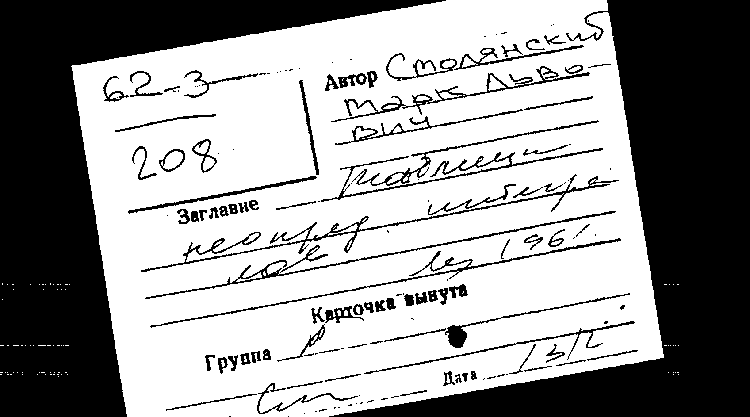 62-3
208
Автор Столянский
Марк Льво-
вич
Заглавие Таблицы
неопред. интегра
лов
1961.
Карточка вынута
Группа
Дата 13/2